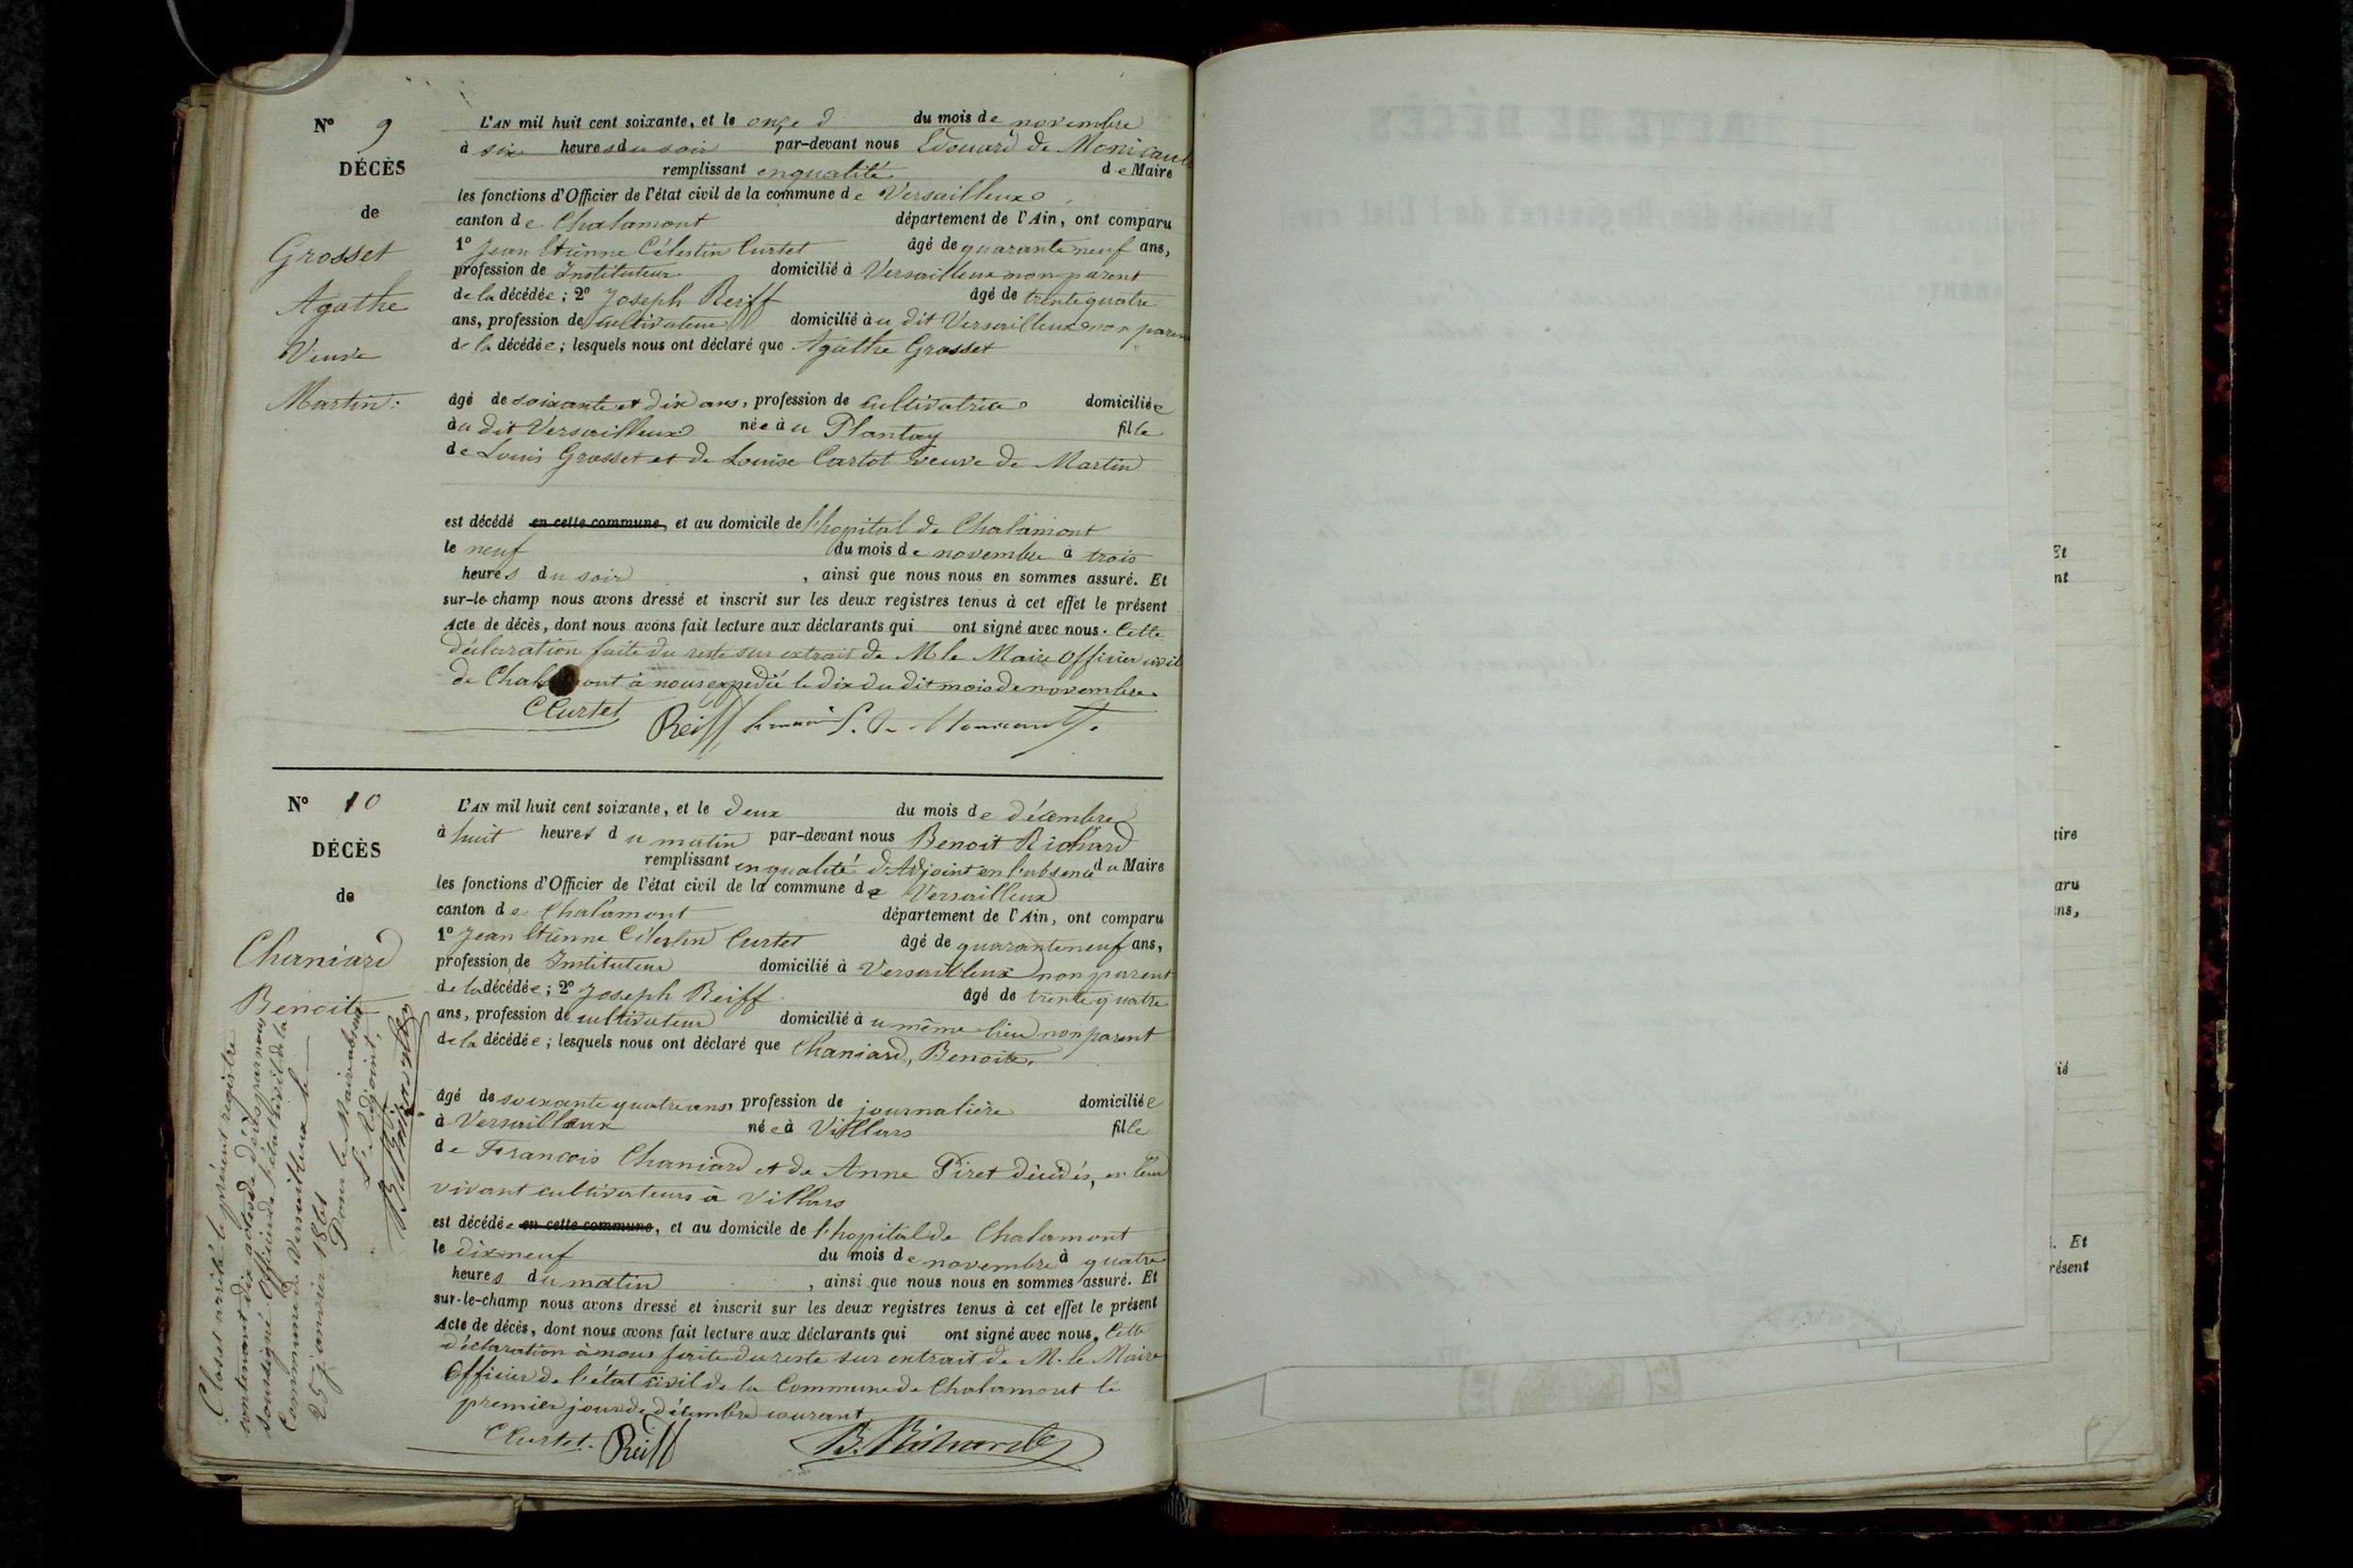 N° 9
DÉCÈS
de
Grosset
Agathe
Veuve
Martin.
L'AN mil huit cent soixante, et le onze du mois de novembre
à six heures du soir par-devant nous Edouard de Monicault
remplissant en qualité de Maire
les fonctions d'Officier de l'état civil de la commune de Versailleux
canton de Chalamont département de l'Ain, ont comparu
1° Jean Etienne Célestin Curtet âgé de quarante neuf ans,
profession de Instituteur domicilié à Versailleux non parent
de la décédée ; 2° Joseph Reiff âgé de trente quatre
ans, profession de cultivateur domicilié au dit Versailleux non parent
de la décédée ; lesquels nous ont déclaré que Agathe Grosset
âgé de soixante et dix ans, profession de cultivatrice domiciliée
au dit Versailleux née au Plantay fille
de Louis Grosset et de Louise Cartot veuve de Martin
est décédé en cette commune, et au domicile de l'hopital de Chalamont
le neuf du mois de novembre à trois
heures du soir , ainsi que nous nous en sommes assuré. Et
sur-le-champ nous avons dressé et inscrit sur les deux registres tenus à cet effet le présent
Acte de décès, dont nous avons fait lecture aux déclarants qui ont signé avec nous. Cette
déclaration faite du reste sur extrait de M le Maire Officier civil
de Chalamont à nous expedié le dix du dit mois de novembre.
CCurtet Reiff le maire de Monicault
N° 10
DÉCÈS
de
Chaniard
Benoite
L'AN mil huit cent soixante, et le deux du mois de décembre
à huit heures du matin par-devant nous Benoit Richard
remplissant en qualité d'Adjoint en l'absence du Maire
les fonctions d'Officier de l'état civil de la commune de Versailleux
canton de Chalamont département de l'Ain, ont comparu
1° Jean Etienne Célestin Curtet âgé de quarante neuf ans,
profession de Instituteur domicilié à Versailleux non parent
de la décédée ; 2° Joseph Reiff âgé de trente quatre
ans, profession de cultivateur domicilié au même lieu non parent
de la décédée ; lesquels nous ont déclaré que Chaniard, Benoite,
âgé de soixante quatre ans, profession de journalière domiciliée
à Versailleux née à Villars fille
de Francois Chaniard et de Anne Piret décédés, en leur
vivant cultivateurs à Villars
est décédée en cette commune, et au domicile de l'hopital de Chalamont
le dix neuf du mois de novembre à quatre
heures du matin , ainsi que nous nous en sommes assuré. Et
sur-le-champ nous avons dressé et inscrit sur les deux registres tenus à cet effet le présent
Acte de décès, dont nous avons fait lecture aux déclarants qui ont signé avec nous. Cette
déclaration à nous faite du reste sur extrait de M. le Maire
Officier de l'état civil de la Commune de Chalamont le
premier jour de décembre courant
CCurtet. Reiff B. Richard
Clos et arrêté le présent registre
contenant dix actes de décès par nous
soussigné Officier de l'état civil de la
Commune de Versailleux le
25 janvier 1861
Pour le Maire absent
L'Adjoint,
B. Richard
Et
nt
aire
aru
ans,
ié
. Et
résent